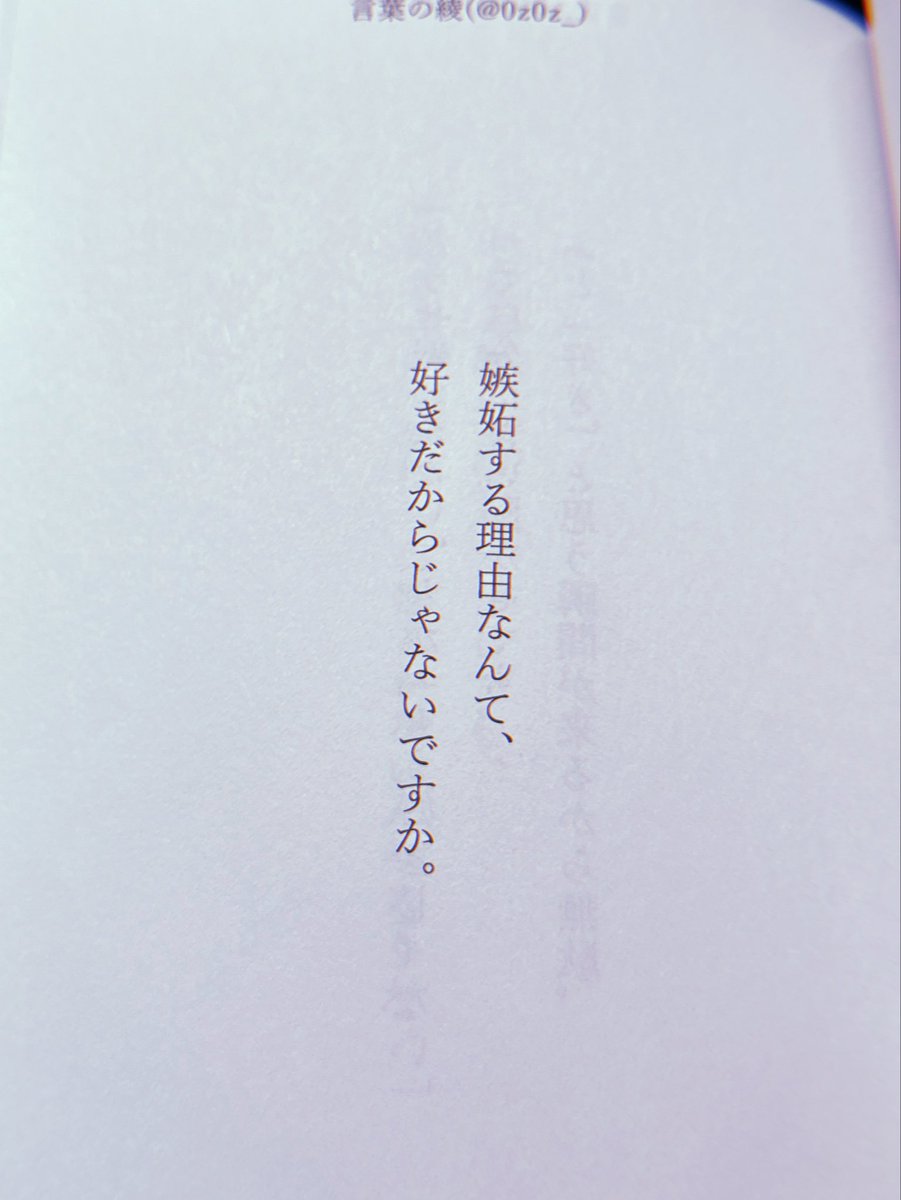 言葉の綾(@0z0z_)
嫉妬する理由なんて、
好きだからじゃないですか。